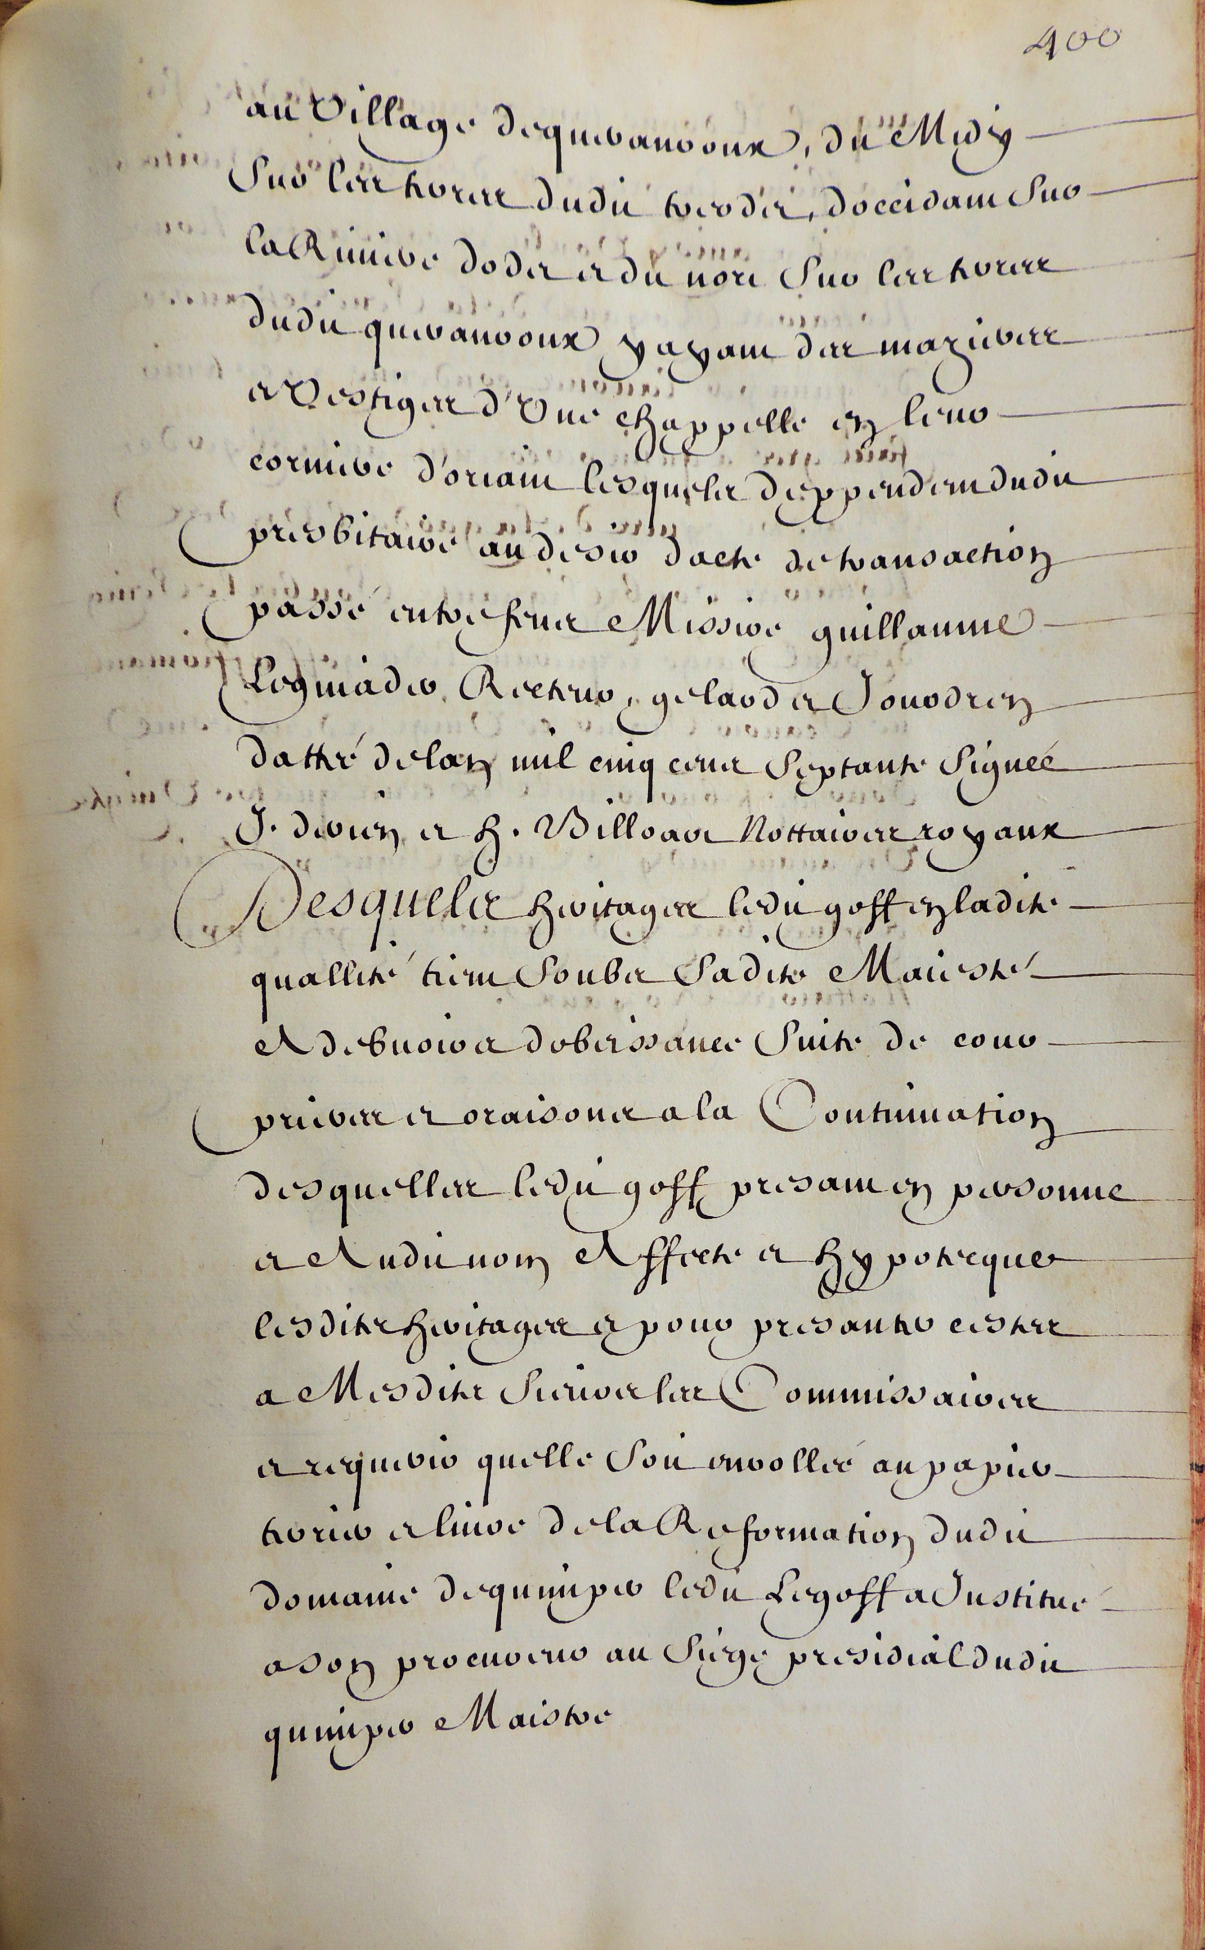 400
au Village dequervanvoux, du Midy
Sur les terres dudit treoder, doccidant Sur
la Riviere doder et du nort Sur les terres
dudit quervanvoux y ayant des mazieres
et Vestiges d'Une chappelle en leur
cornière d'oriant lesquels deppendent dudit
presbitaire au desir dacte de transaction
passé entre feus Missire guillaume
Leguiader Recteur, de
datté de lan mil cinq cents Septante Signée
J. derien et h. Billoart Nottaires royaux
Desquels heritages ledit goff en ladite
quallité tient Soubs Sadite Maiesté
A debvoirs dobeissance Suite de cour
prieres et oraisons a la Continuation
desquelles ledit goff presant en personne
et Audit nom Affecte et hypotecque
lesdits heritages et pour presanter cestes
a Mesdits Sieurs les Commissaires
et requerir quelle Soit enrollée au papier
terrier et livre de la Reformation dudit
domaine dequimper ledit Legoff a Institué
a son procureur au Siege presidial dudit
quimper Maistre